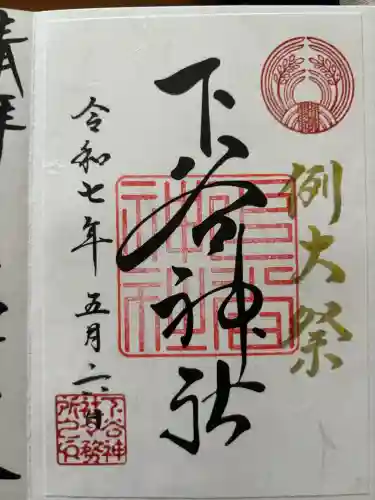 例大祭
下谷神社
令和七年 五月六日
下谷神
社務
所之印
奉拝